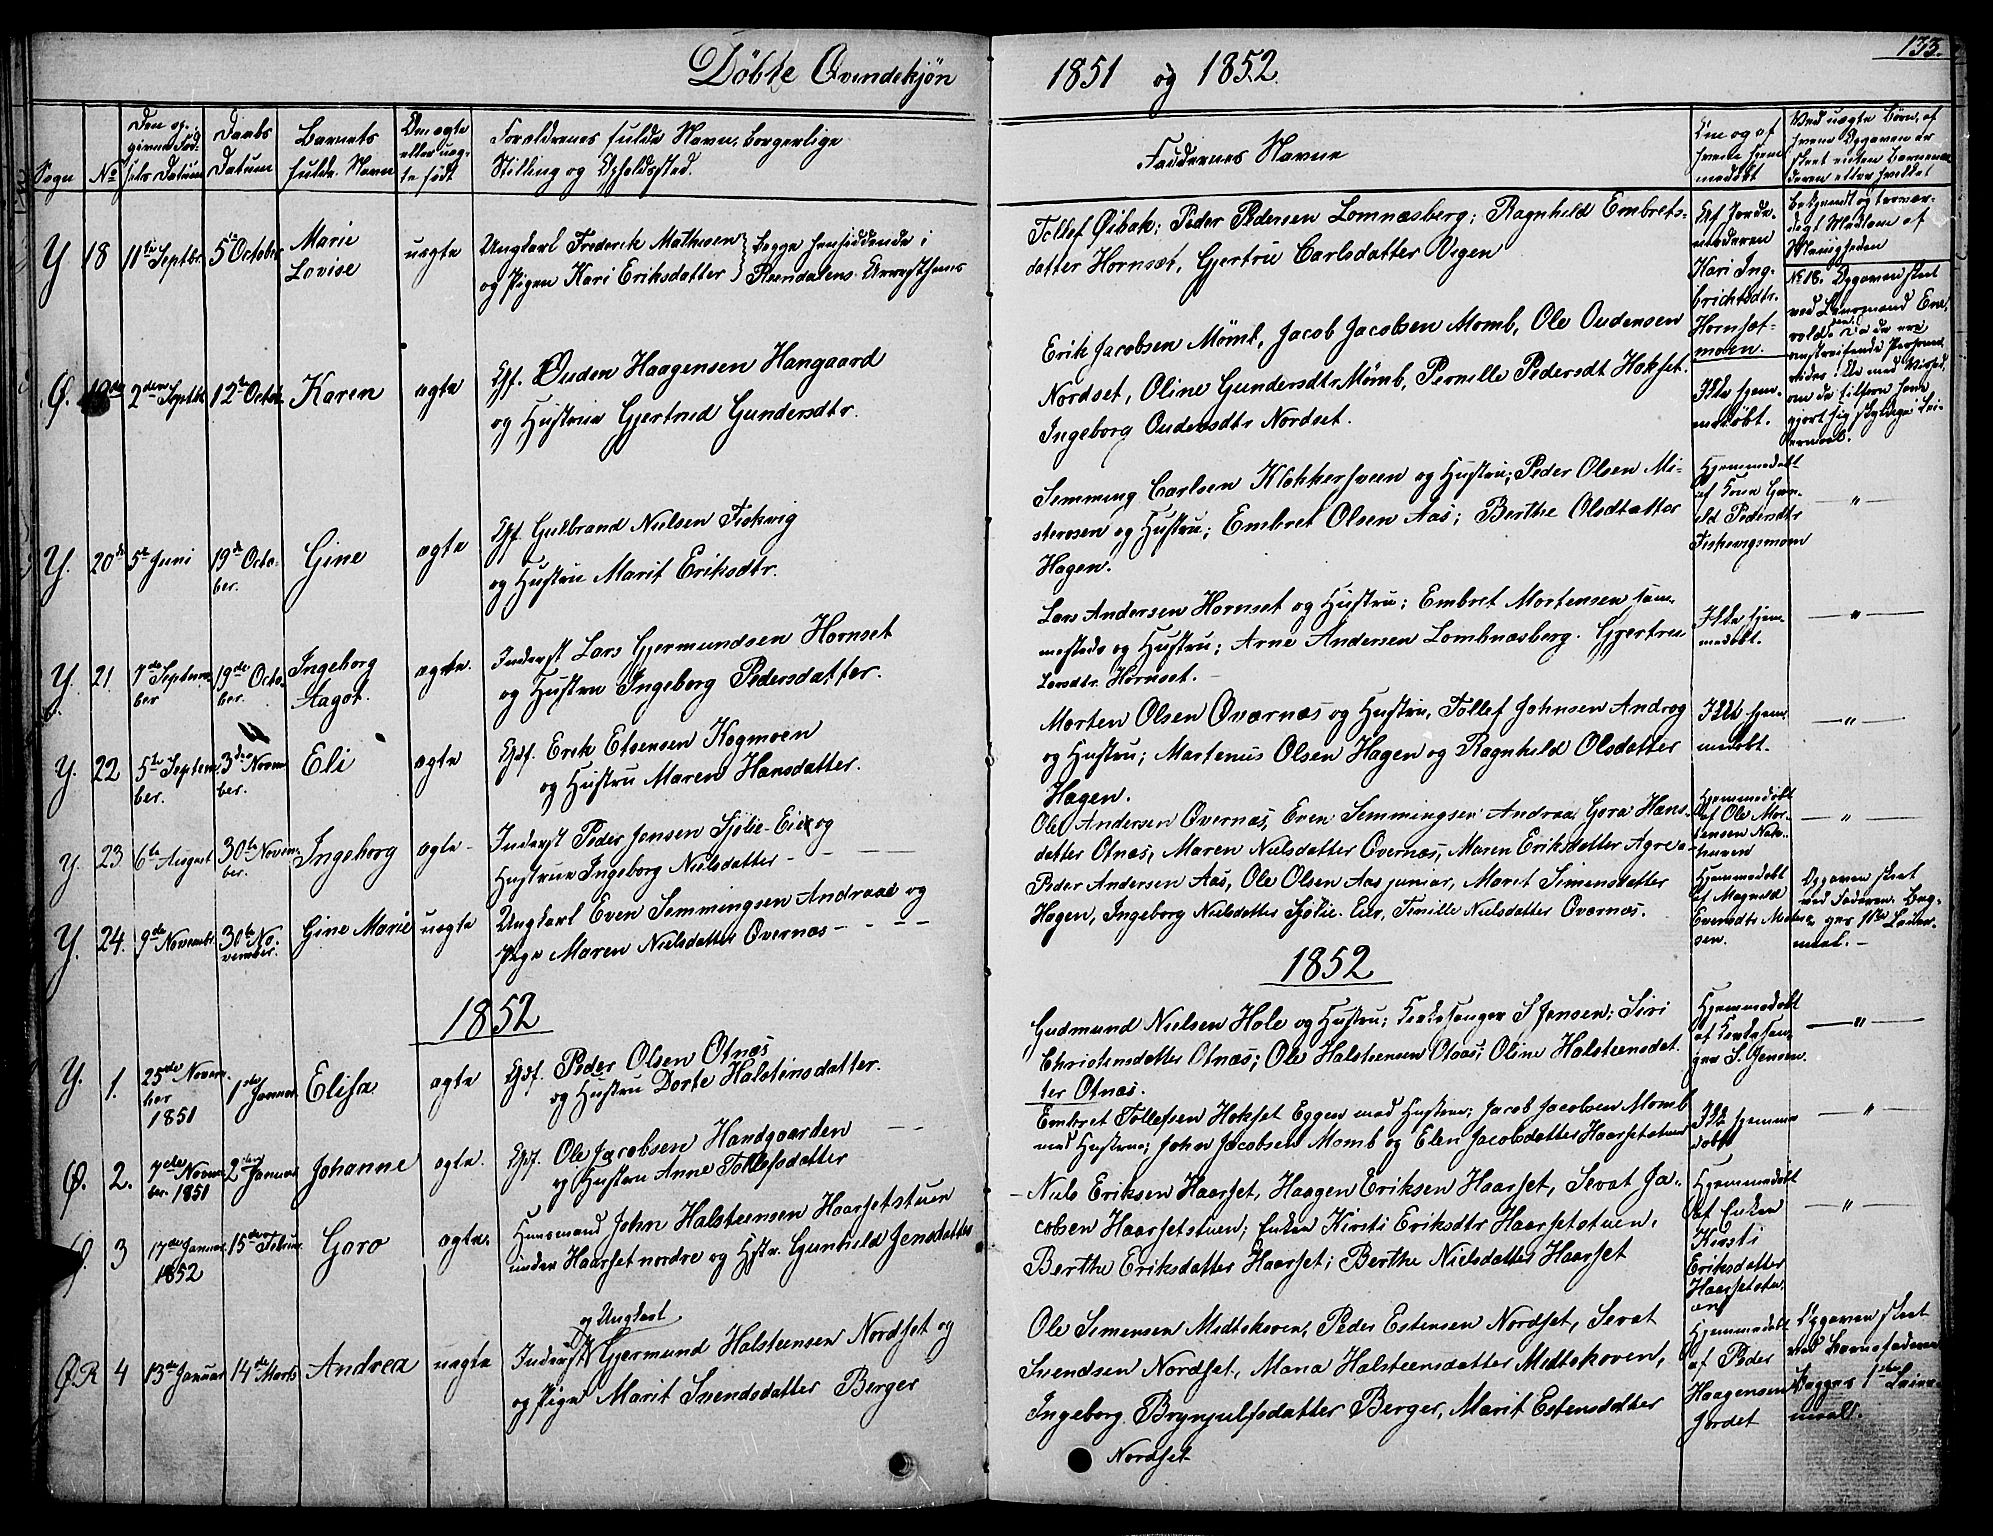 Döbte Qvindekjön
1851 og 1852
133.
Sogn
No
Den opgivne Fødsels Datum
Daabs Datum
Barnets fulde Navn
Om ægte eller uægte født
Forældrenes fulde Navn, borgerlige
Stilling og Opholdssted.
Faddernes Navne
Om og af hvem hjemmedøbt
Ved uægte Børn, af
hvem Opgaven er
skeet
Y 18 11te Septbr. 5te October Marie Lovise uægte
Ungkarl Frederik Mathisen
og Pigen Kari Eriksdatter
Begge hensiddende i
Reendalens Arresthuus
Tollef Øibak; Peder Pedersen Lomnæsberg; Ragnhild Embrets-
datter Hornset, Gjertru Carlsdatter Vegen
Af Jorde-
moderen
Kari Ing-
brichtsdtr.
Hornset-
moen.
No 18. Opgaven skeet
ved Lensmand
Ø. 19de 2den Septbr 12te Octbr. Karen ægte
Gf. Ouden Haagensen Hangaard
og Hustrue Gjertrud Gundersdtr.
Erik Jacobsen Mömb, Jacob Jacobsen Momb, Ole Oudensen
Nordset, Oline Gundersdtr Mömb, Pernille Pedersdt Hokset.
Ingeborg Oudensdtr Nordset.
Ikke hjem-
medøbt.
Y. 20de 5te Juni 19de Octo-
ber. Gine ægte
Gf. Gulbrand Nielsen Fiskvig
og Hustru Marit Eriksdtr.
Semming Carlsen Klokkersveen og Hustru; Peder Olsen Mi-
sterosen og Hustru; Embret Olsen Aas; Berthe Olsdtatter
Hagen.
Hjemmedøbt
af Kone
Pedersdtr
Fiskevigsmoen
— " —
Y. 21. 7de Septem-
ber 19de Octo-
ber. Ingeborg
Aagot. ægte.
Inderst Lars Gjermundsen Hornset
og Hustru Ingeborg Pedersdatter.
Lars Andersen Hornset og Hustru; Embret Mortensen sam-
mesteds og Hustru; Arne Andersen Lombnæsberg. Gjertru
Larsdtr. Hornset.
Ikke hjem-
medøbt.
— " —
Y. 22 5te Septem-
ber. 3die Novem-
ber. Eli ægte
Gdf. Erik Etsensen Kogmoen
og Hustru Maren Hansdatter.
Morten Olsen Qværnæs og Hustru, Tollef Johnsen Androg
og Hustru; Martenus Olsen Hagen og Ragnhild Olsdatter
Hagen.
Ikke hjem-
medøbt.
— " —
Y. 23 6te August 30te Novem-
ber. Ingeborg ægte
Inderst Peder Jensen Sjölie-Eie og
Hustrue Ingeborg Nielsdatter
Ole Andersen Qvernæs, Even Semmingsen Andraa, Gora Hans-
datter Otnæs, Maren Nielsdatter Qvernæs, Maren Eriksdatter Agre
Hjemmedøbt
af Ole Mor-
tensen
— " —
Y. 24. 9de Novembr. 30te No-
vember. Gine Marie uægte
Ungkarl Even Semmingsen Andraae og
Pige Maren Nielsdatter Qvernæs
Peder Andersen Aas, Ole Olsen Aas junior, Marit Simensdatter
Hagen, Ingeborg Nielsdatter Sjölie-Eier, Tenille Nielsdatter Qvernæs.
Hjemmedøbt
af Magnild
Evensdtr
Opgaven skeet
ved Faderen. Beg-
ges 1ste Leier-
maal.
1852
1852
Y. 1. 25de Novem-
ber
1851 1ste Januar Elisa ægte
Gdf. Peder Olsen Otnæs
og Hustru Dorte Halstensdatter.
Gudmund Nielsen Hole og Hustru; Kirkesanger S. Jensen; Siri
Christensdatter Otnæs; Ole Halsteensen Otnæs; Oline Halsteensdat-
ter Otnæs.
Hjemmedøbt
af Kirkesan-
ger S. Jensen.
— " —
Ø. 2. 7de Novem-
ber. 1851 2den Januar Johanne ægte.
Gdf. Ole Jacobsen Handgaarden
og Hustru Anne Tollefsdatter
Embret Tollefsen Hokset Eggen med Hustrue; Jacob Jacobsen Momb
med Hustrue; John Jacobsen Momb og Elen Jacobsdatter Haarsetstuen
Ikke hjemme-
døbt
— " —
Ø. 3 17de Januar
1852 15de Februar Goro ægte.
Huusmand John Halsteensen Haarsetstuen
under Haarset nordre og Hstr. Gunhild Jensdatter
Niels Eriksen Haarset, Haagen Eriksen Haarset, Sevat Ja-
cobsen Haarsetstuen; Enken Kirsti Eriksdtr Haarsetstuen,
Berthe Eriksdatter Haarset; Berthe Nielsdatter Haarset
Hjemmedøbt
af Enken
Kirsti
Eriksdatter
Haarsetstu-
en
— " —
ØR 4 13de Januar 14de Marts Andrea uægte
og Ungkarl
Inderst Gjermund Halsteensen Nordset og
og Pige Marit Svendsdatter Berger
Ole Simensen Midtskoven, Peder Estensen Nordset, Sevat
Svendsen Nordset, Maria Halsteensdatter Midtskoven,
Ingeborg Brynjulfsdatter Berger, Marit Estensdatter
Nordset
Hjemmedøbt
af Peder
Haagensen
Jordet
Opgaven skeet
ved Barnefaderen
Begges 1ste Leier-
maal.